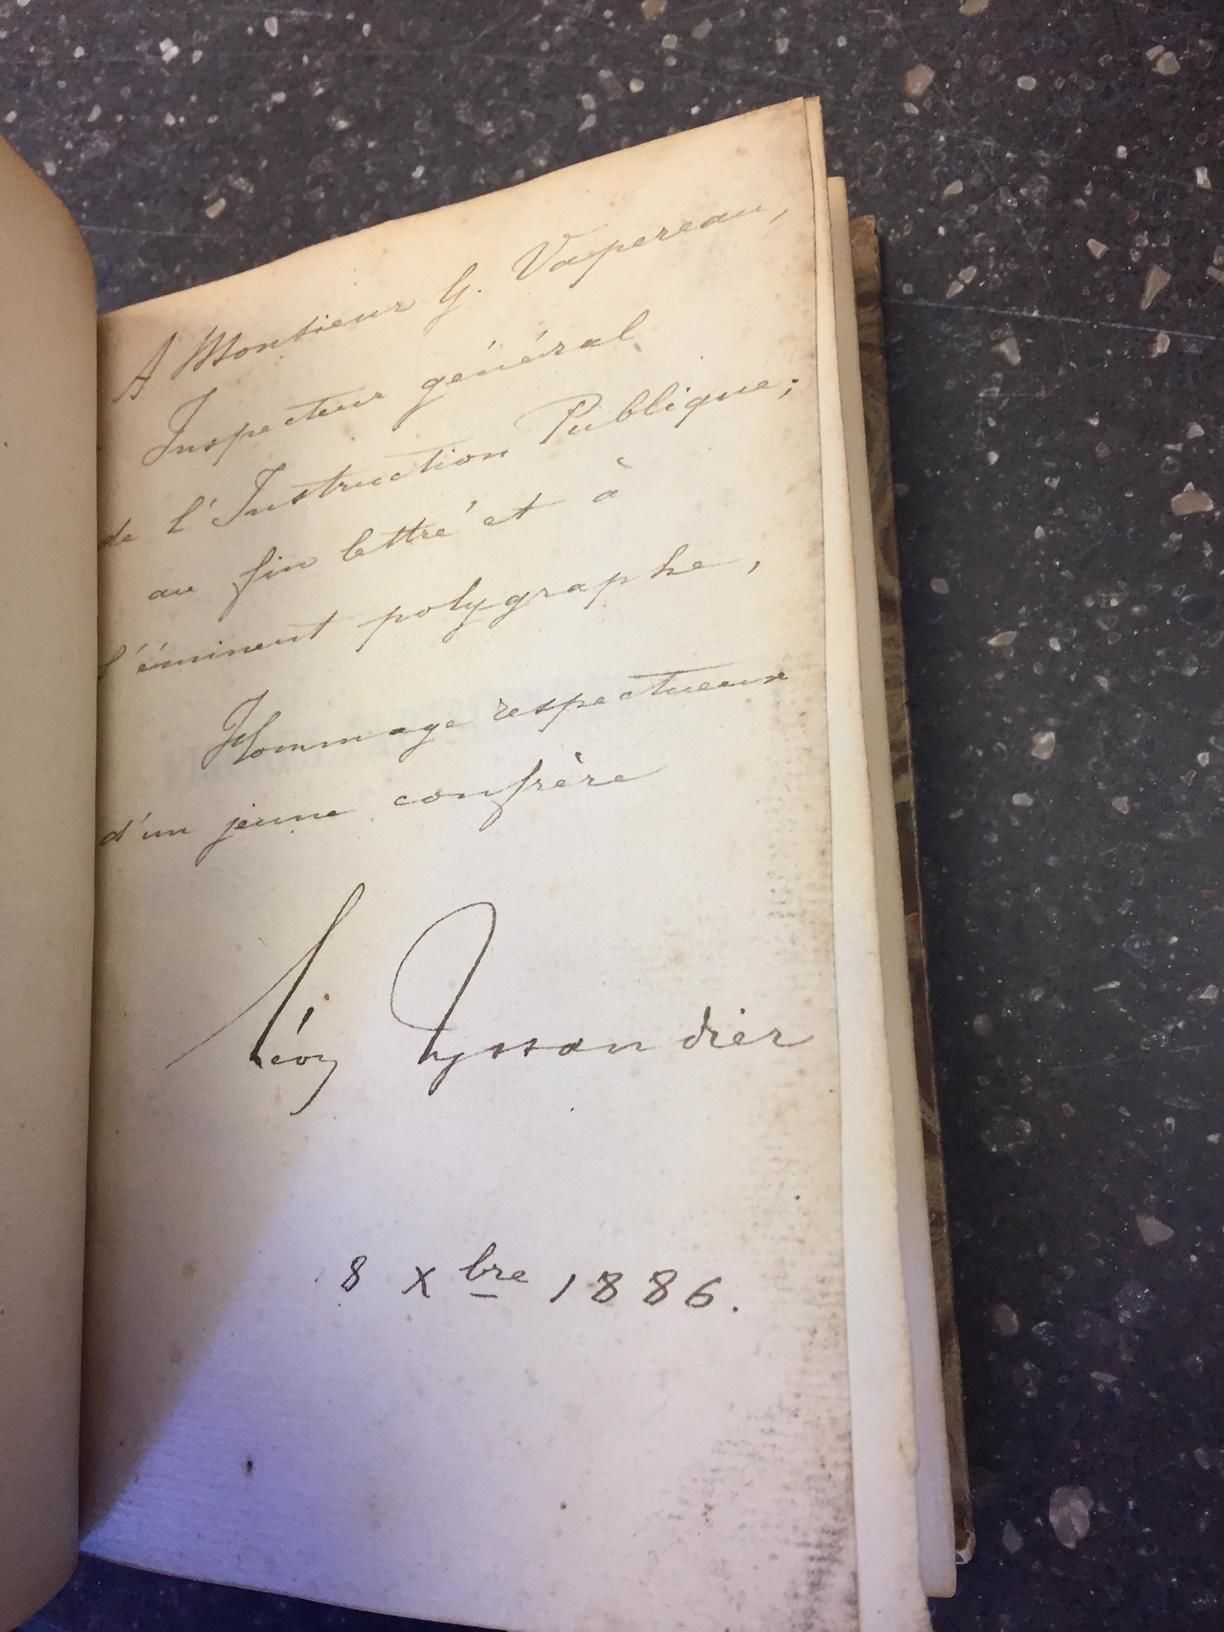 A Monsieur G. Vapereau,
Inspecteur général
de l'Instruction Publique;
au fin lettré et à
l'éminent polygraphe,
Hommage respectueux
d'un jeune confrère
Léon Tyssandier
8 Xbre 1886.